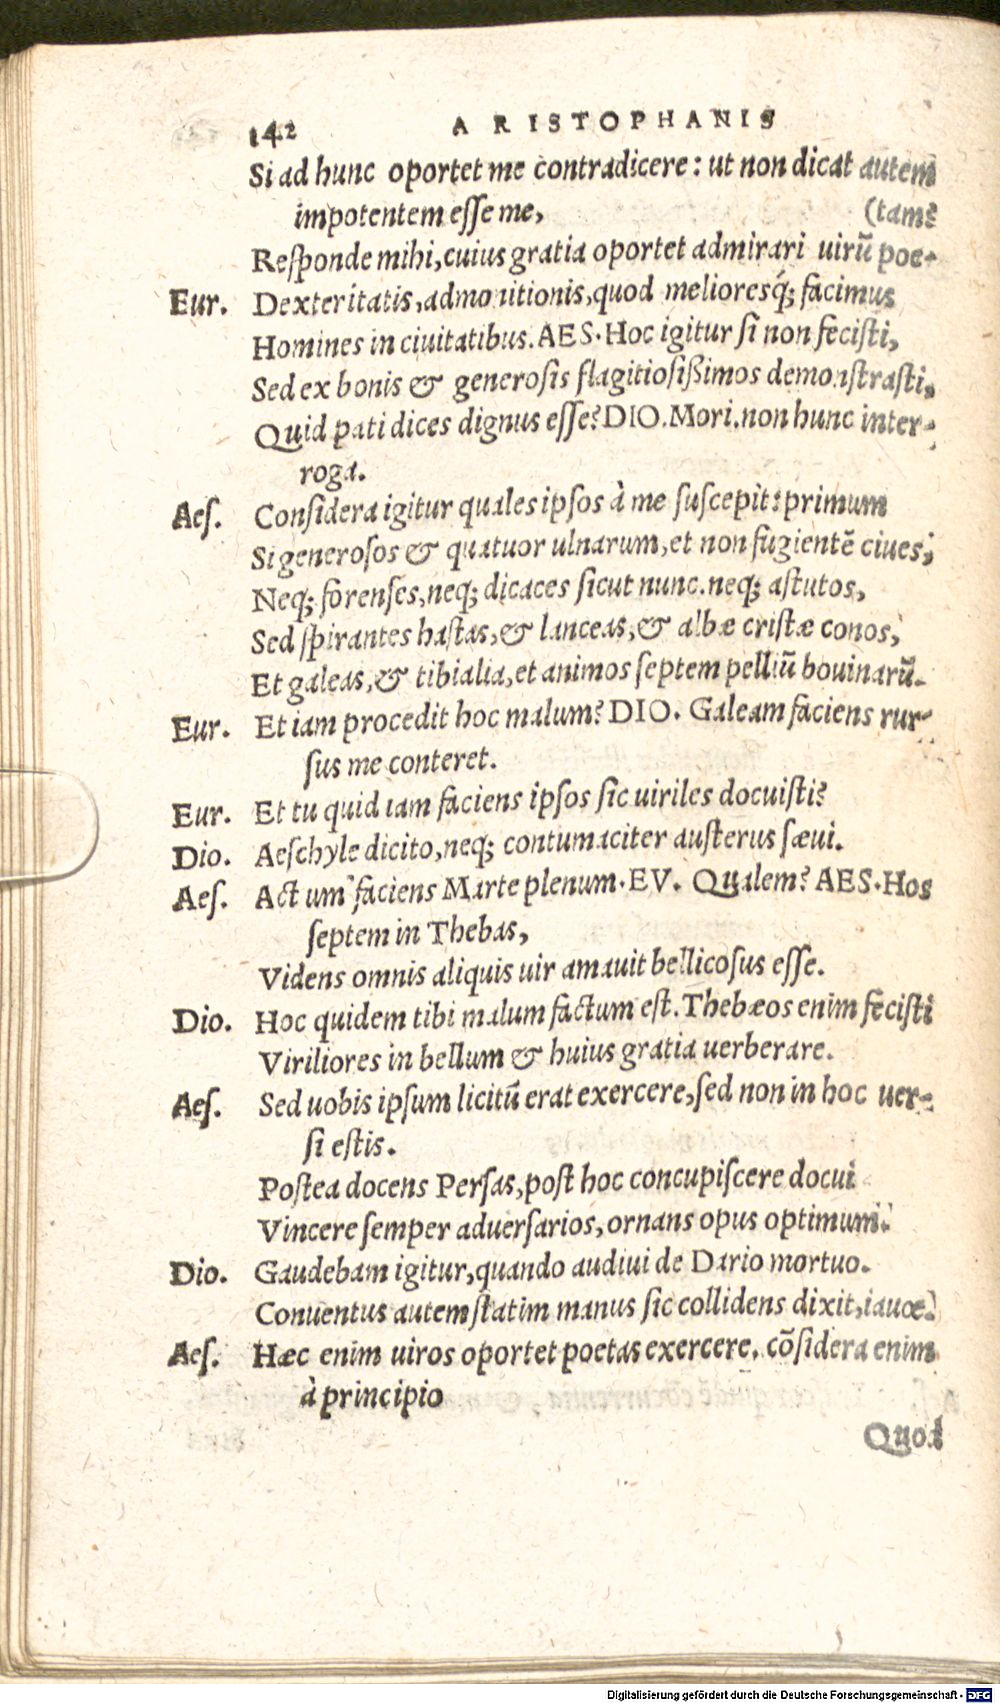 142 ARISTOPHANIS
Si ad hunc oportet me contradicere: ut non dicat autem
impotentem esse me, (tamẽ
Responde mihi, cuius gratia oportet admirari uirũ poe-
Eur. Dexteritatis, admonitionis, quod melioresq́; facimus
Homines in ciuitatibus. AES. Hoc igitur si non fecisti,
Sed ex bonis & generosis flagitiosißimos demonstrasti,
Quid pati dices dignus esse? DIO. Mori. non hunc inter-
roga.
Aes. Considera igitur quales ipsos à me suscepit: primum
Si generosos & quatuor ulnarum, et non fugientẽ ciues,
Neq; forenses, neq; dicaces sicut nunc. neq; astutos,
Sed spirantes hastas, & lanceas, & albæ cristæ conos,
Et galeas, & tibialia, et animos septem pelliũ bouinarũ.
Eur. Et iam procedit hoc malum? DIO. Galeam faciens rur-
sus me conteret.
Eur. Et tu quid iam faciens ipsos sic uiriles docuisti?
Dio. Aeschyle dicito, neq; contumaciter austerus sæui.
Aes. Actum faciens Marte plenum. EV. Qualem? AES. Hos
septem in Thebas,
Videns omnis aliquis uir amauit bellicosus esse.
Dio. Hoc quidem tibi malum factum est. Thebæos enim fecisti
Viriliores in bellum & huius gratia uerberare.
Aes. Sed uobis ipsum licitũ erat exercere, sed non in hoc uer-
si estis.
Postea docens Persas, post hoc concupiscere docui
Vincere semper aduersarios, ornans opus optimum.
Dio. Gaudebam igitur, quando audiui de Dario mortuo.
Conuentus autem statim manus sic collidens dixit, iauœ.
Aes. Hæc enim uiros oportet poetas exercere. cõsidera enim
à principio
Quod
Digitalisierung gefördert durch die Deutsche Forschungsgemeinschaft - DFG